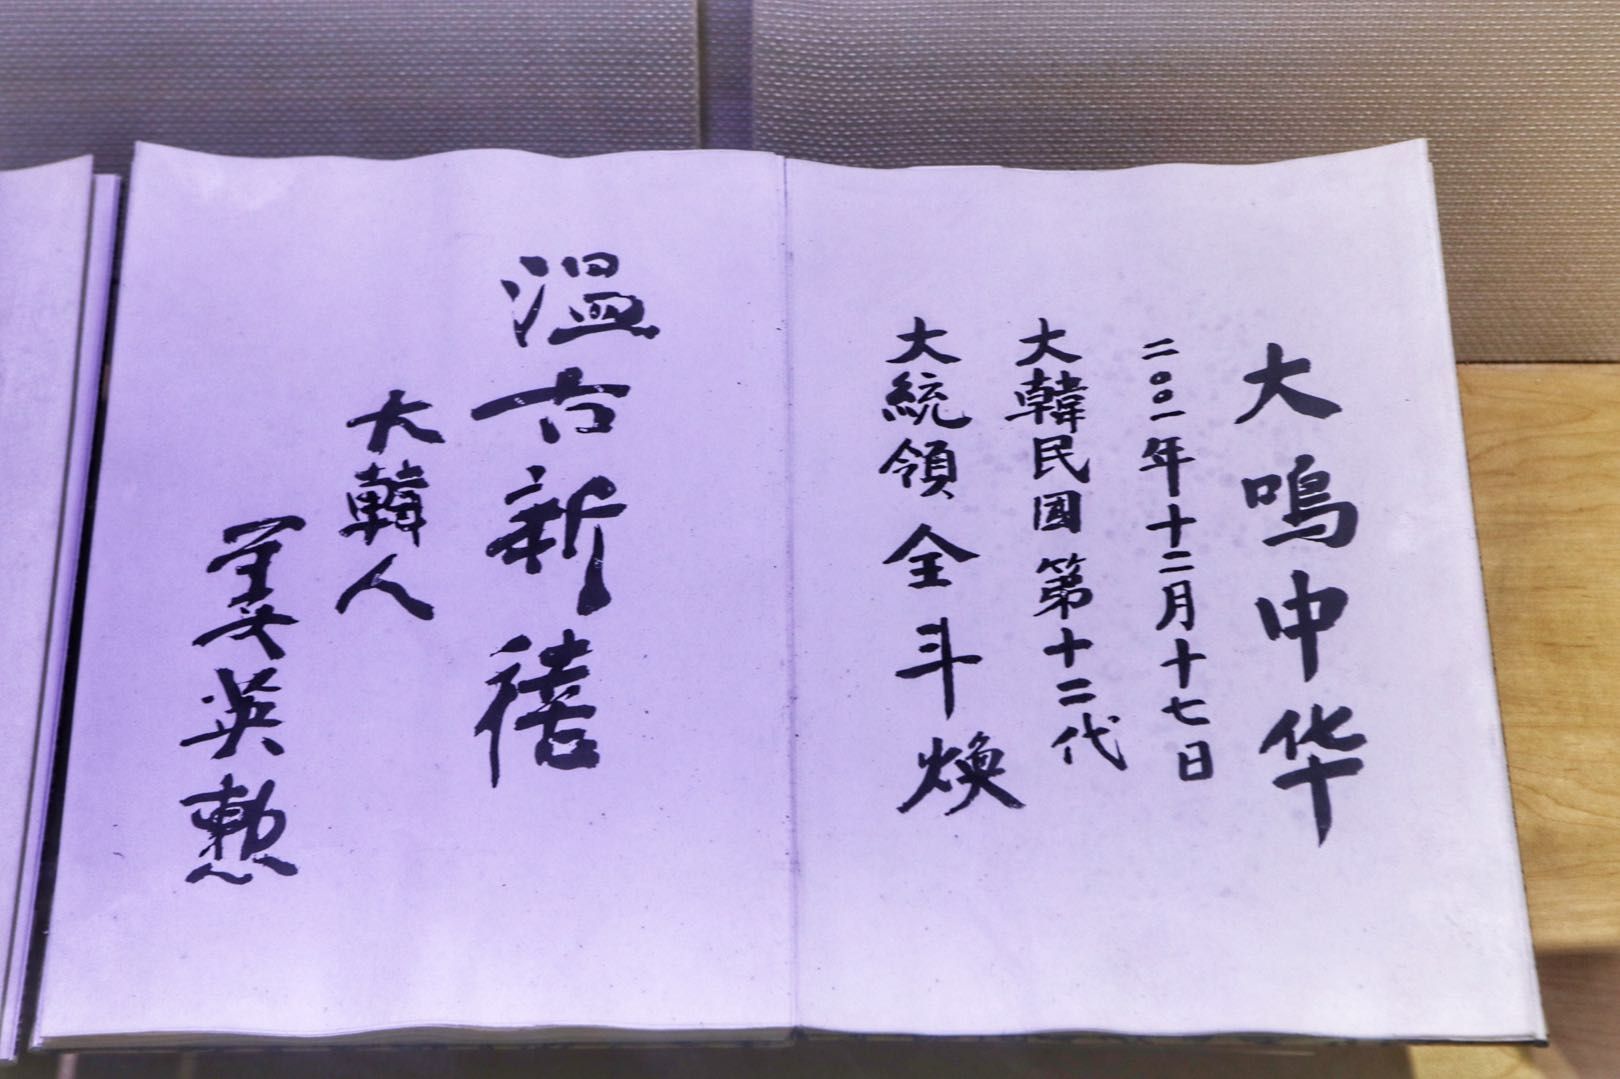 大鳴中华
二〇〇一年十二月十七日
大韓民國第十二代
大統領全斗煥
温古新禧
大韓人
姜英勲